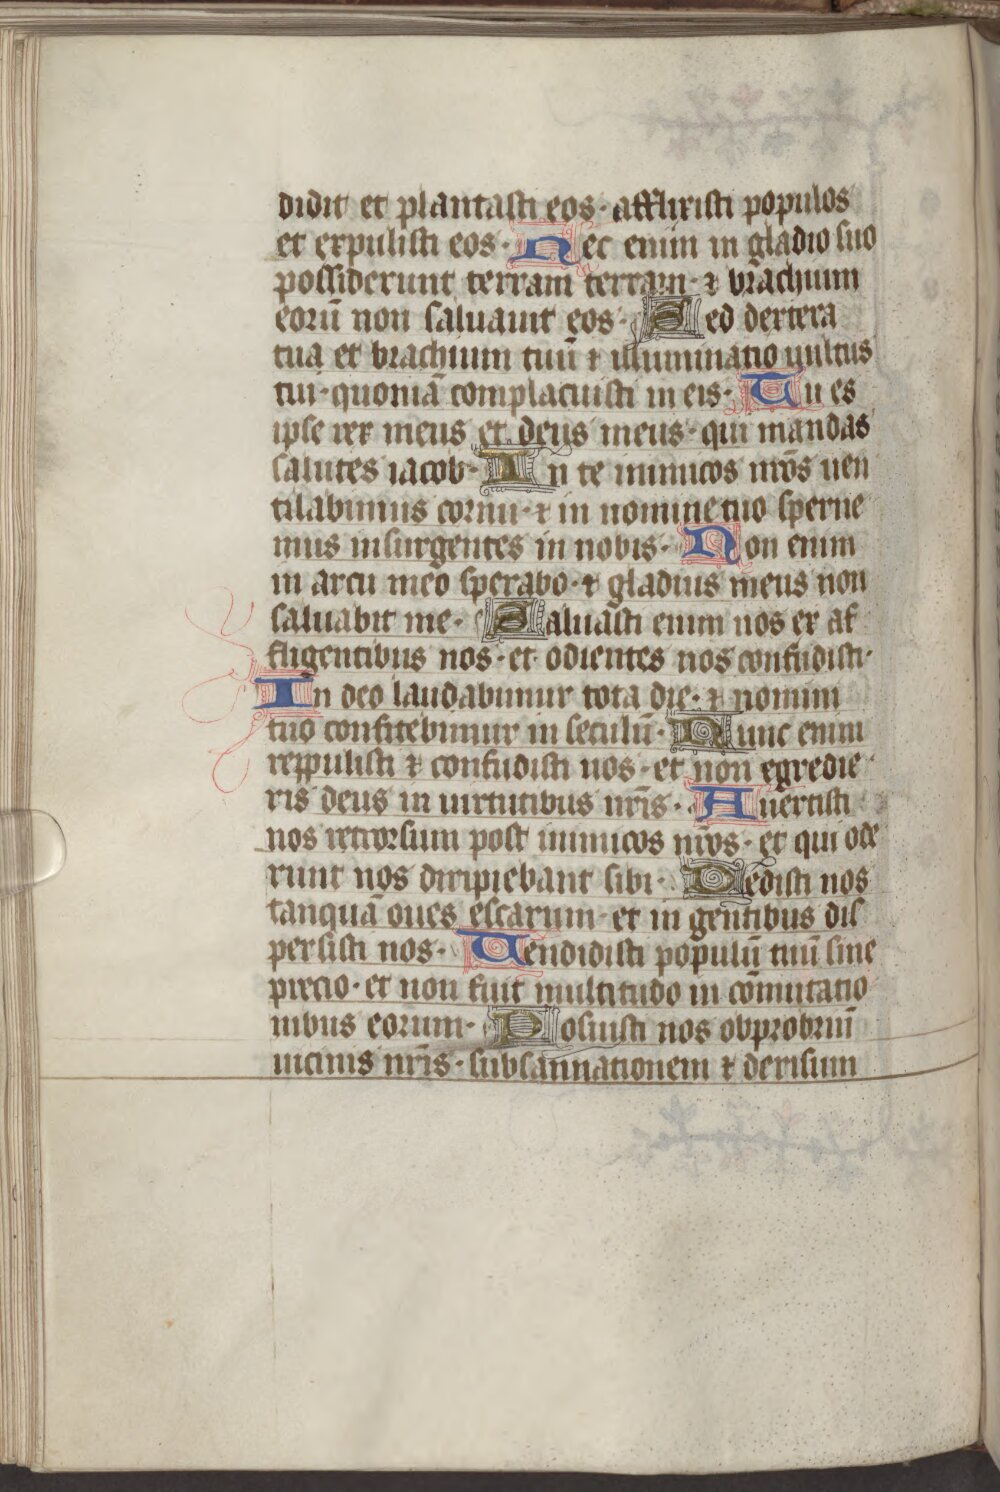 didit et plantasti eos · afflixisti populos
et expulisti eos · Nec enim in gladio suo
possiderunt terram terram · ⁊ brachium
eorū non saluauit eos · Sed dextera
tua et brachium tuū ⁊ illuminatio uultus
tui · quoniā complacuisti in eis · Tu es
ipse rex meus et deus meus · qui mandas
salutes iacob · In te inimicos nr̄os uen
tilabimus cornu · ⁊ in nomine tuo sperne
mus insurgentes in nobis · Non enim
in arcu meo sperabo · ⁊ gladius meus non
saluabit me · Saluasti enim nos ex af
fligentibus nos · et odientes nos confudisti ·
In deo laudabimur tota die · ⁊ nomini
tuo confitebimur in seculū · Nunc enim
reppulisti ⁊ confudisti nos · et non egredie
ris deus in uirtutibus nr̄is · Auertisti
nos retrorsum post inimicos nr̄os · et qui ode
runt nos diripiebant sibi · Dedisti nos
tanquā oues escarum · et in gentibus dis
persisti nos · Uendidisti populū tuū sine
precio · et non fuit multitudo in cōmutatio
nibus eorum · Posuisti nos obprobriū
uicinis nr̄is · subsannationem ⁊ derisum